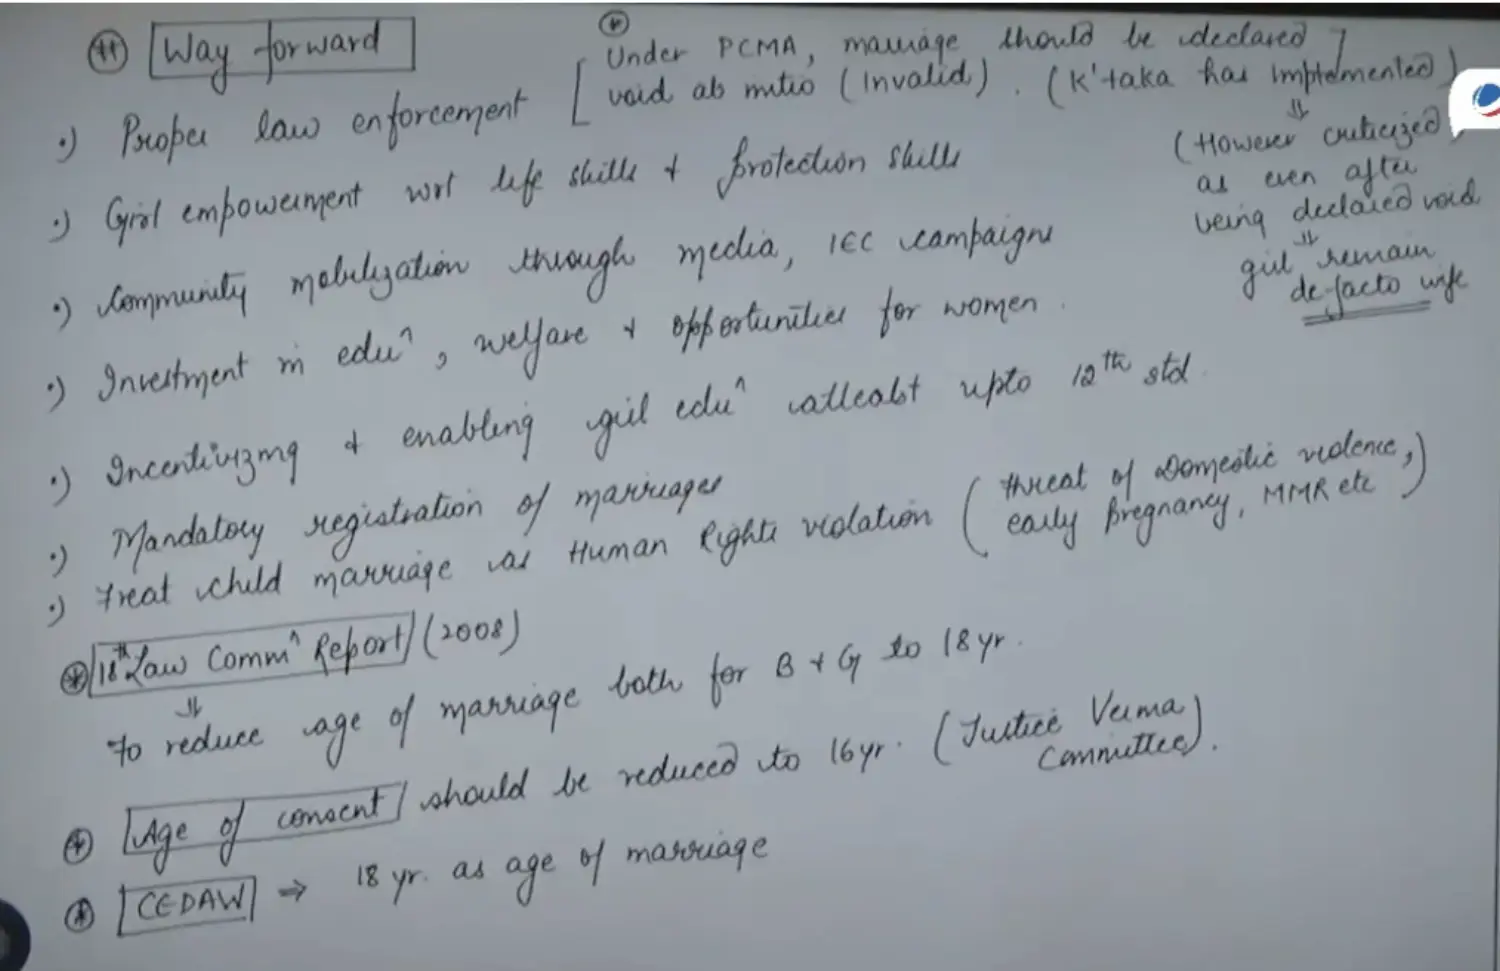 Way forward
Under PCMA, marriage should be declared
void ab initio (Invalid). (K'taka has implemented)
(However criticized
as even after
being declared void
⇓
girl remain
de-facto wife
·) Proper law enforcement
·) Girl empowerment wrt life skills & protection skills
·) Community mobilization through media, IEC campaigns
·) Investment in eduⁿ, welfare & opportunities for women.
·) Incentivizing & enabling girl eduⁿ atleast upto 12th std.
·) Mandatory registration of marriages
·) Treat child marriage as Human Rights violation (threat of Domestic violence,
early pregnancy, MMR etc)
18th Law Commⁿ Report (2008)
⇓
to reduce age of marriage both for B & G to 18 yr.
Age of consent should be reduced to 16 yr. (Justice Verma
Committee).
CEDAW ⇒ 18 yr. as age of marriage